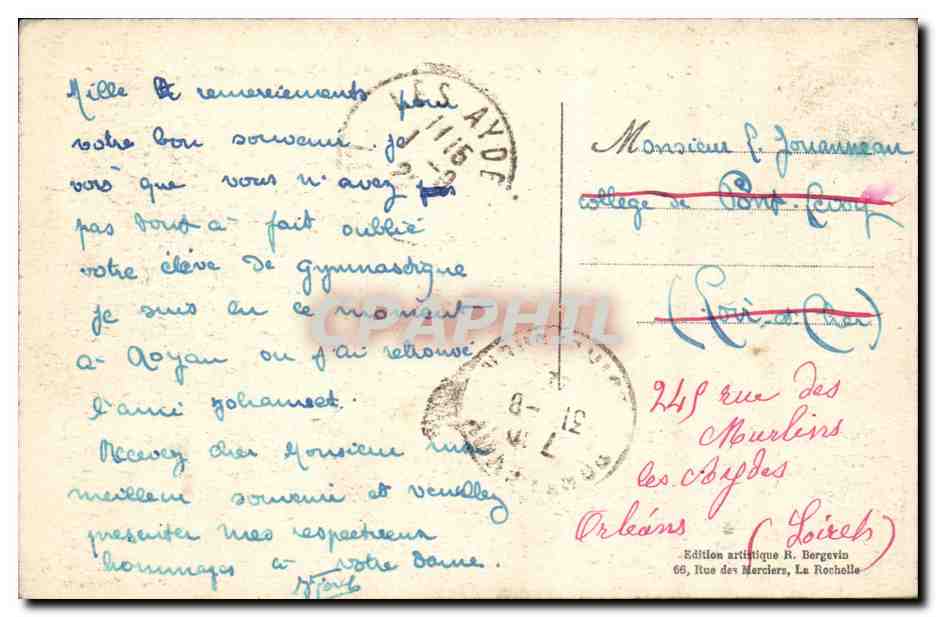 Mille remerciements pour
votre bon souvenir. je
vois que vous n'avez pas
pas tout à fait oublié
votre élève de gymnastique
je suis en ce moment
à Royan ou j'ai retrouvé
l'ami
Recevez cher Monsieur mon
meilleur souvenir et veuillez
presenter mes respectueux
hommages à votre dame.
LES AYDE
Monsieur E. Jouanneau
collège de Pont-Levoy
(Loir et Cher)
245 rue des
Murlins
les Aydes
Orléans (Loiret)
Edition artistique R. Bergevin
66, Rue des Merciers, La Rochelle
CPAPHIL